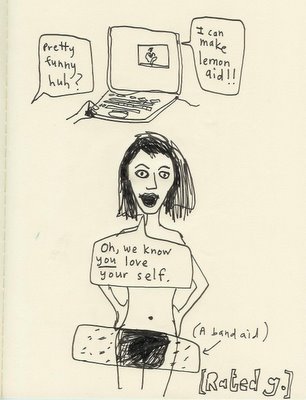 pretty
funny
huh?
I can
make
lemon
aid!!
Oh, we know
you love
your self.
(A band aid)
[Rated g.]